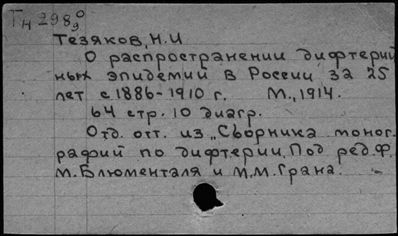 Тн 298⁰₉
Тезяков, Н.И
О распространении дифтерий
ных эпидемий в России за 25
лет с 1886-1910 г. М., 1914.
64 стр. 10 диагр.
Отд. отт. из „Сборника моног
рафий по дифтерии. Под ред. Ф.
М. Блюменталя и М.М. Грана.